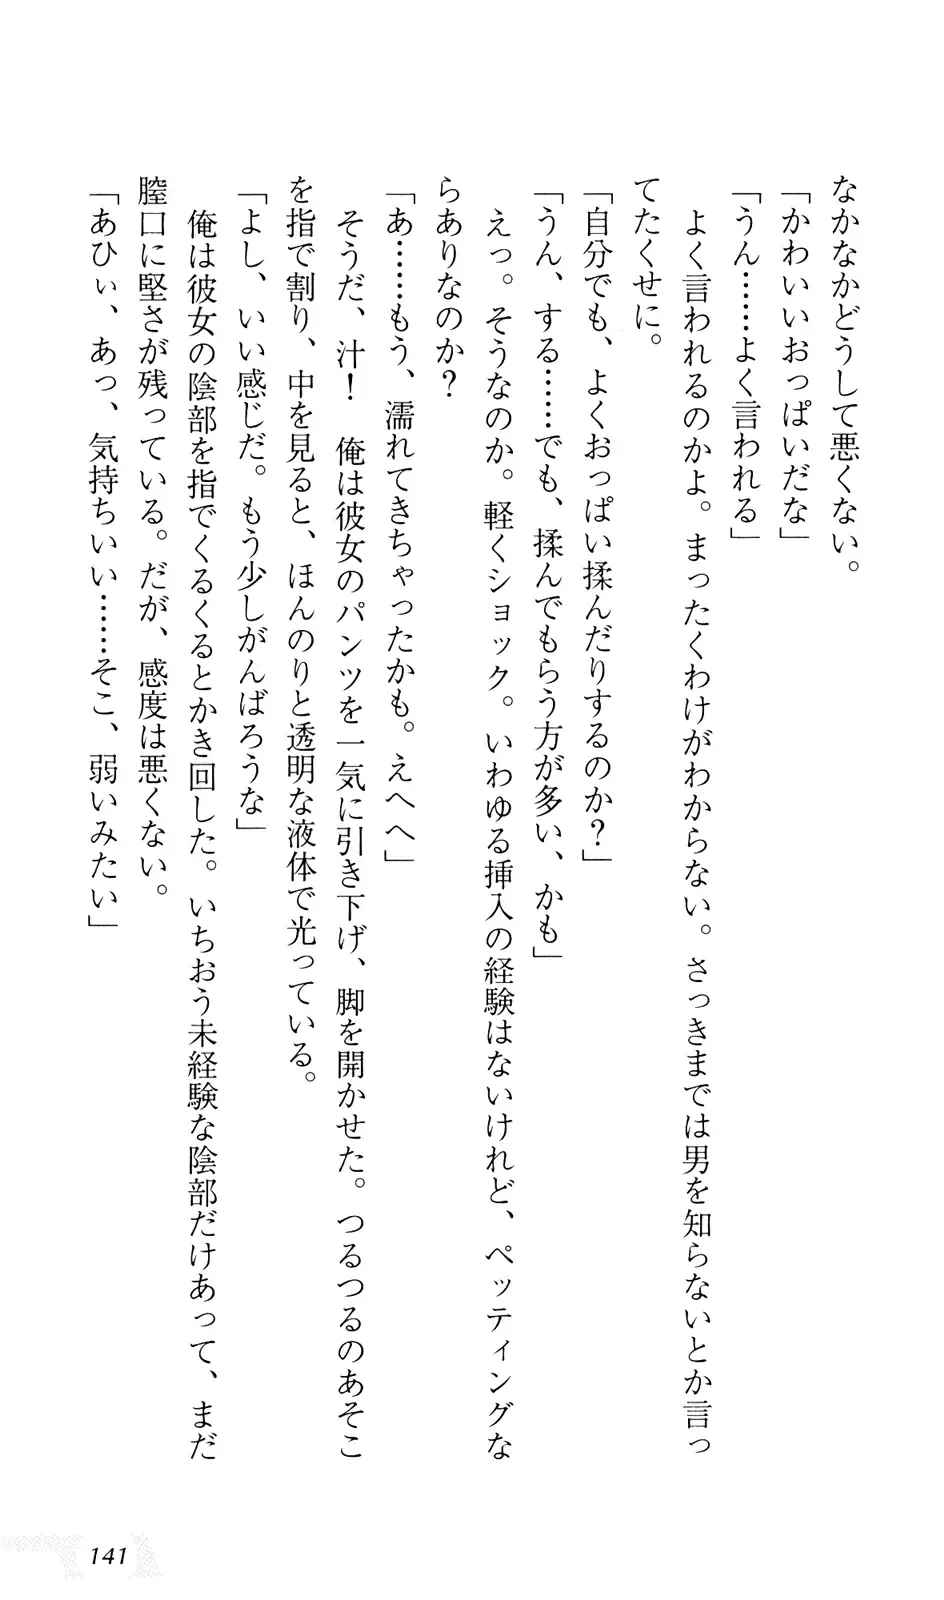 なかなかどうして悪くない。
「かわいいおっぱいだな」
「うん……よく言われる」
よく言われるのかよ。まったくわけがわからない。さっきまでは男を知らないとか言っ
てたくせに。
「自分でも、よくおっぱい揉んだりするのか？」
「うん、する……でも、揉んでもらう方が多い、かも」
えっ。そうなのか。軽くショック。いわゆる挿入の経験はないけれど、ペッティングな
らありなのか？
「あ……もう、濡れてきちゃったかも。えへへ」
そうだ、汁！　俺は彼女のパンツを一気に引き下げ、脚を開かせた。つるつるのあそこ
を指で割り、中を見ると、ほんのりと透明な液体で光っている。
「よし、いい感じだ。もう少しがんばろうな」
俺は彼女の陰部を指でくるくるとかき回した。いちおう未経験な陰部だけあって、まだ
膣口に堅さが残っている。だが、感度は悪くない。
「あひぃ、あっ、気持ちいい……そこ、弱いみたい」
141